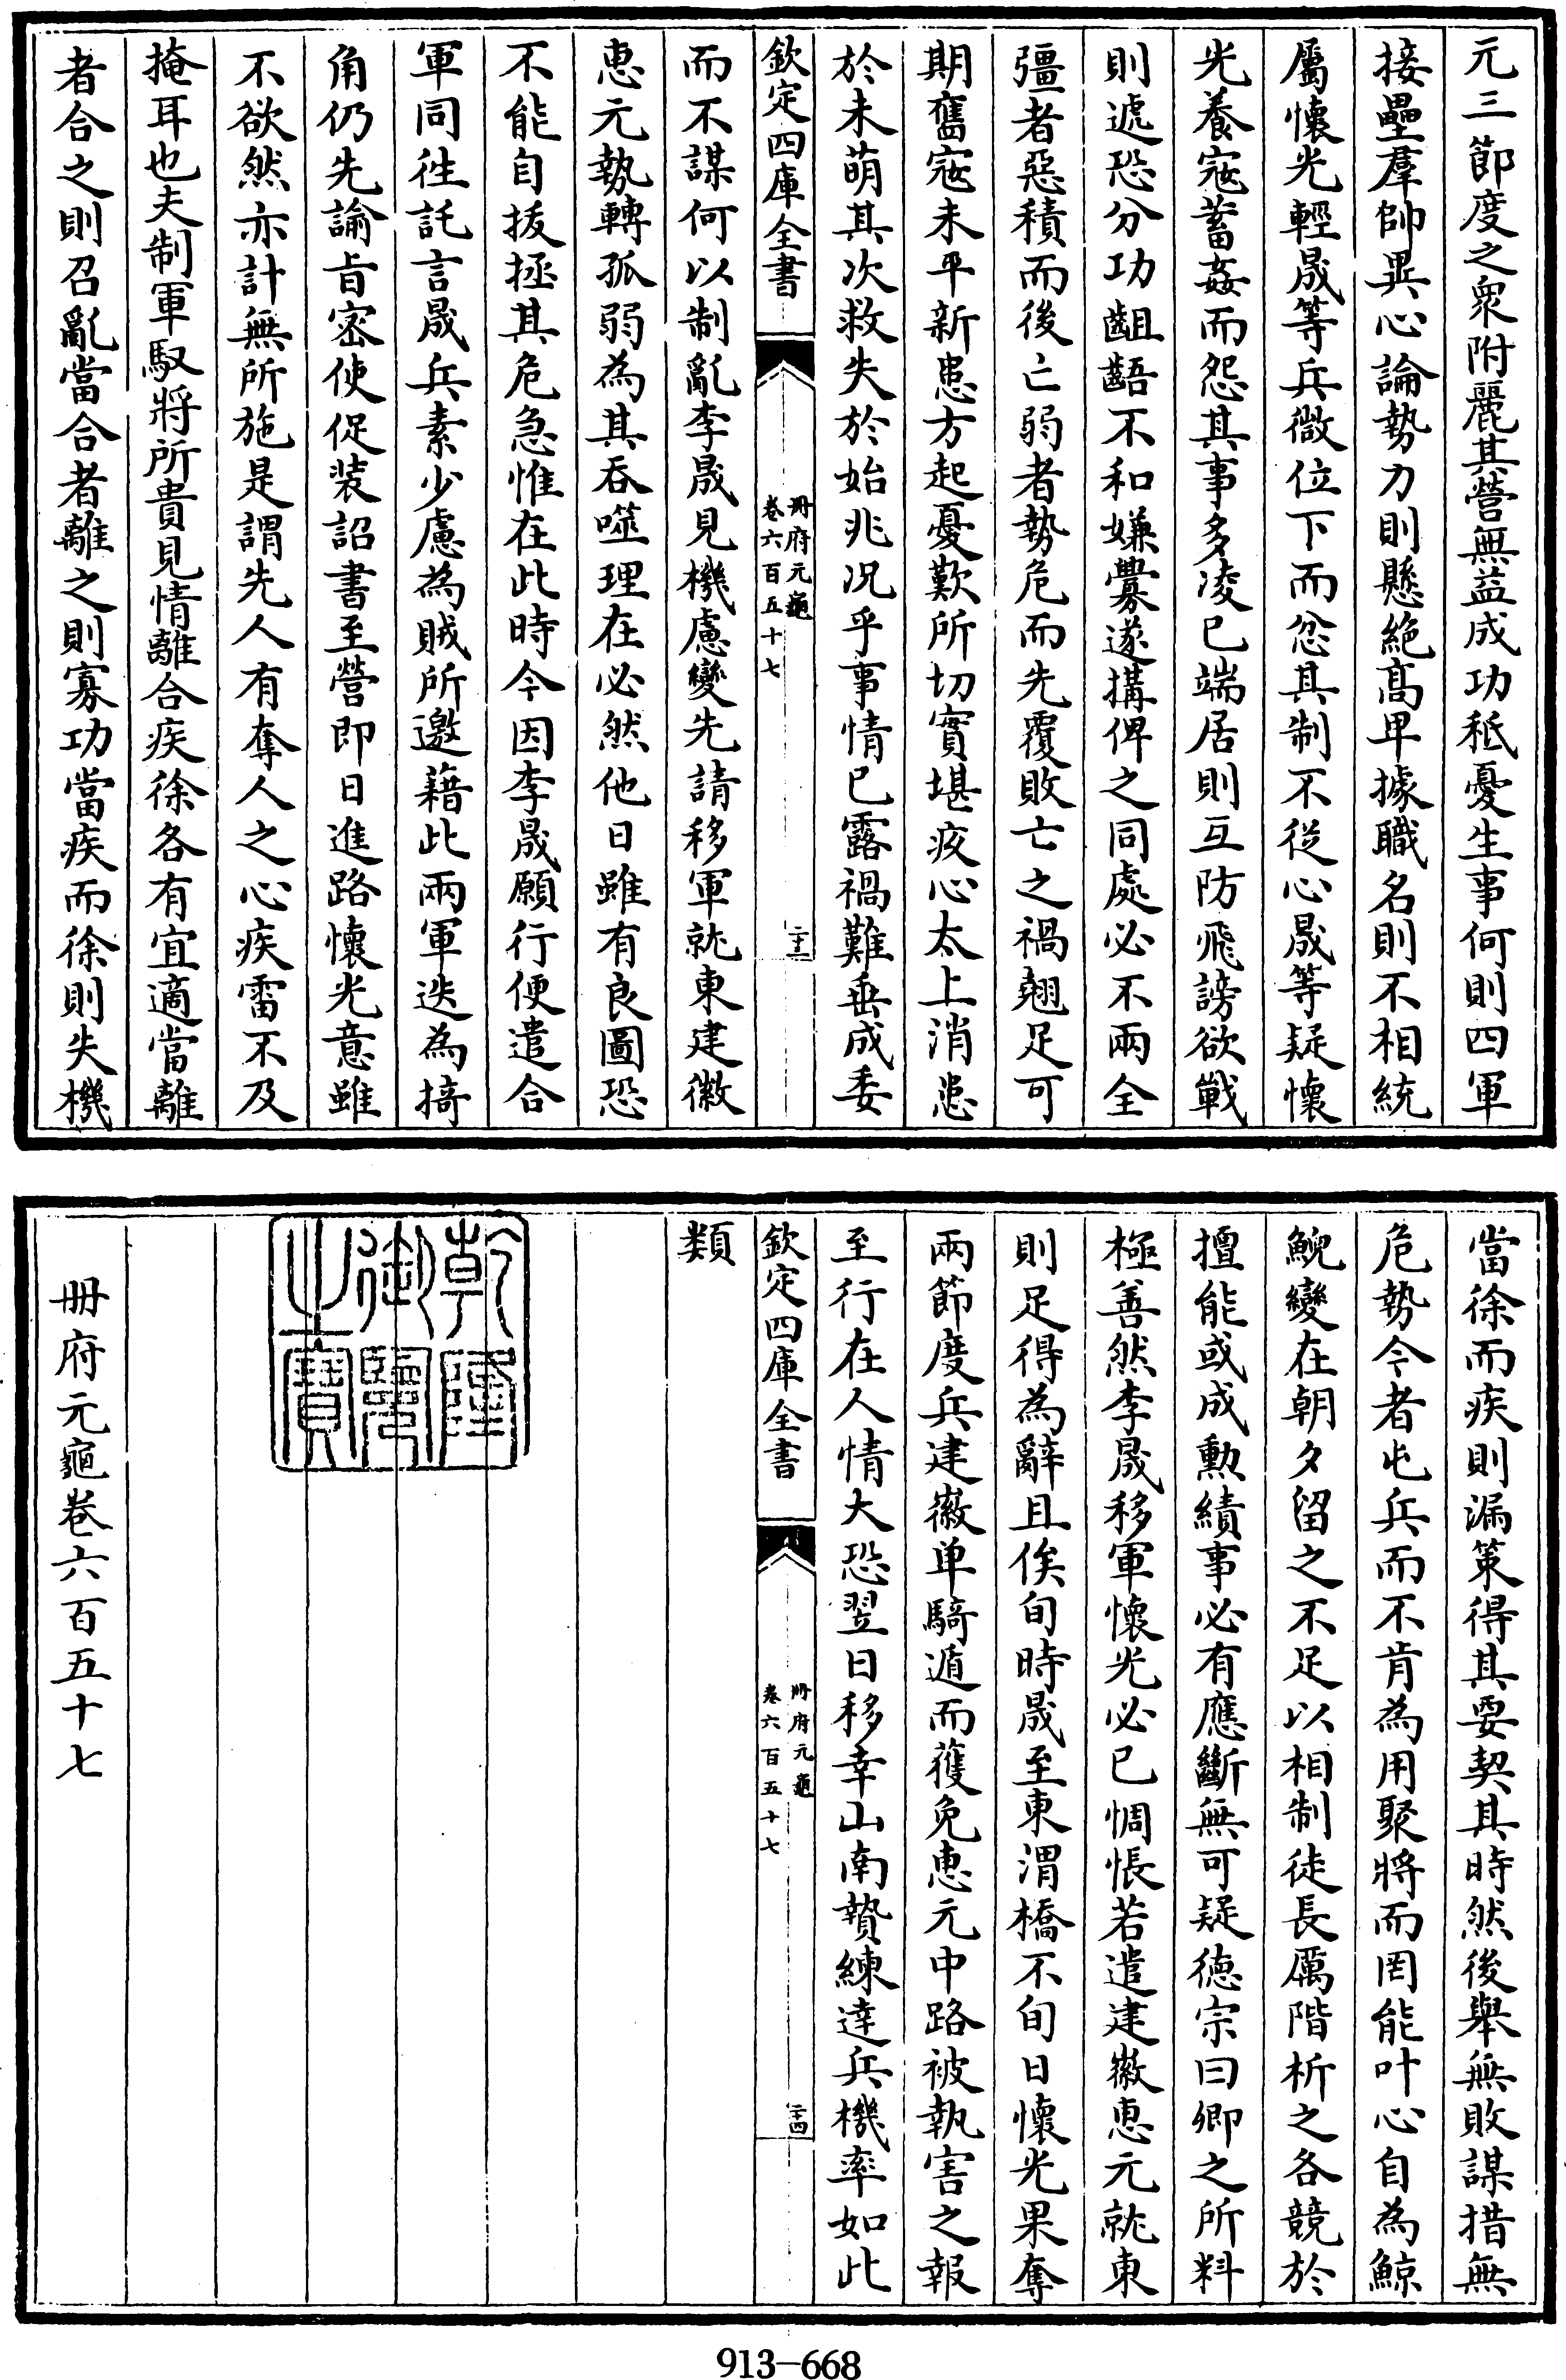 元三節度之衆附麗其營無益成功秪憂生事何則四軍
接壘羣帥異心論勢力則懸絶髙卑據職名則不相統
屬懷光輕晟等兵微位下而忿其制不從心晟等疑懷
光養寇蓄姦而怨其事多凌已端居則互防飛謗欲戰
則遞恐分功齟齬不和嫌釁遂搆俾之同處必不兩全
彊者惡積而後亡弱者勢危而先覆敗亡之禍翹足可
期舊寇未平新患方起憂歎所切實堪疚心太上消患
於未萌其次救失於始兆况乎事情已露禍難垂成委
欽定四庫全書
冊府元龜
卷六百五十七
二十三
而不謀何以制亂李晟見機慮變先請移軍就東建徽
惠元勢轉孤弱為其吞噬理在必然他日雖有良圖恐
不能自拔拯其危急惟在此時今因李晟願行便遣合
軍同徃託言晟兵素少慮為賊所邀藉此兩軍迭為掎
角仍先諭旨密使促装詔書至營即日進路懷光意雖
不欲然亦計無所施是謂先人有奪人之心疾雷不及
掩耳也夫制軍馭將所貴見情離合疾徐各有宜適當離
者合之則召亂當合者離之則寡功當疾而徐則失機
當徐而疾則漏策得其要契其時然後舉無敗謀措無
危勢今者屯兵而不肯為用聚將而罔能叶心自為鯨
鯢變在朝夕留之不足以相制徒長厲階析之各競於
擅能或成勲績事必有應斷無可疑徳宗曰卿之所料
極善然李晟移軍懷光必已惆悵若遣建徽惠元就東
則足得為辭且俟旬時晟至東渭橋不旬日懷光果奪
兩節度兵建徽单騎遁而獲免惠元中路被執害之報
至行在人情大恐翌日移幸山南贄練達兵機率如此
欽定四庫全書
冊府元龜
卷六百五十七
二十四
類
乾隆御覽之寶
冊府元龜卷六百五十七
913-668